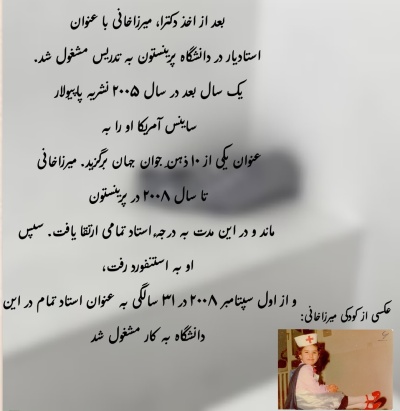 بعد از اخذ دکترا، میرزاخانی با عنوان
استادیار در دانشگاه پرینستون به تدریس مشغول شد.
یک سال بعد در سال ۲۰۰۵ نشریه پاپیولار
ساینس آمریکا او را به
عنوان یکی از ۱۰ ذهن جوان جهان برگزید. میرزاخانی
تا سال ۲۰۰۸ در پرینستون
ماند و در این مدت به درجه‌ء استاد تمامی ارتقا یافت. سپس
او به استنفورد رفت،
و از اول سپتامبر ۲۰۰۸ در ۳۱ سالگی به عنوان استاد تمام در این
دانشگاه به کار مشغول شد
عکسی از کودکی میرزاخانی: